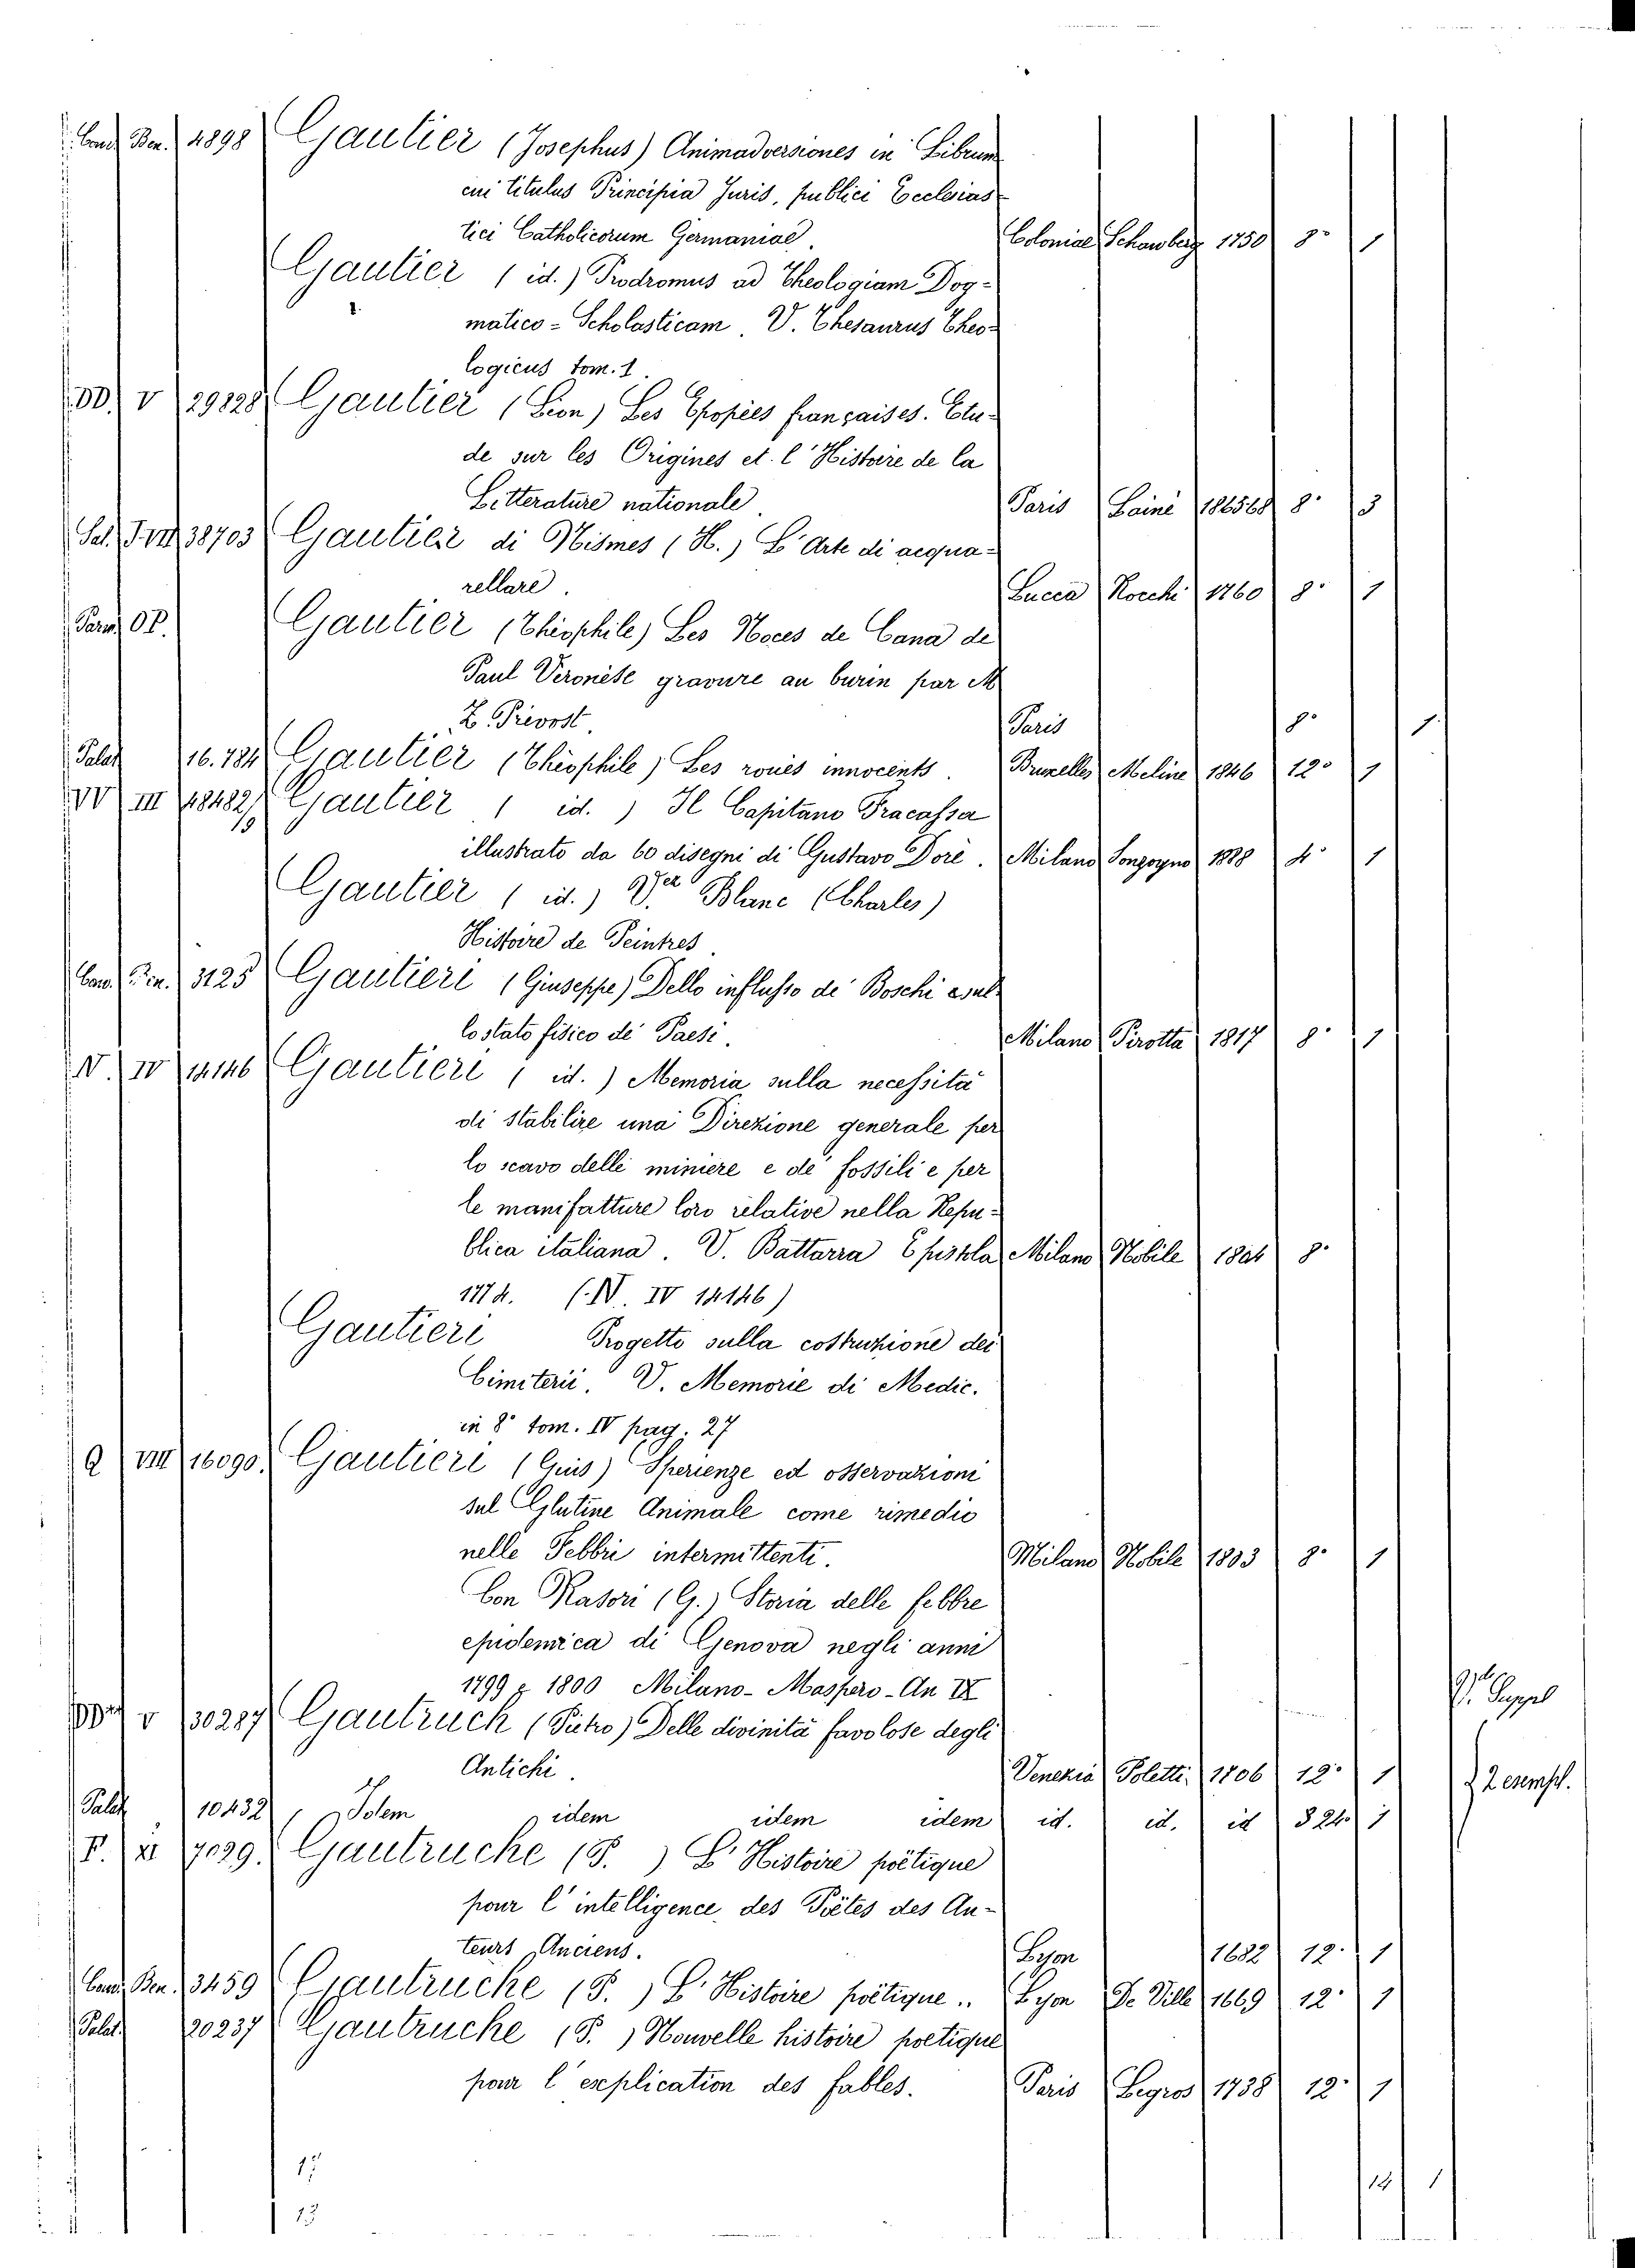 Cand. Ben. 4898 Gautier (Josephus) Animadversiones in Librum
cui titulus Principia Juris, publici Ecclesias-
tici Catholicorum Germaniae. Coloniae Schawberg 1750 8° 1
Gautier (id.) Prodromus ad Theologiam Dog-
matico-Scholasticam. V. Thesaurus Theo-
logicus tom. 1.
DD. V 29828 Gautier (Léon) Les Epopées françaises. Etu-
de sur les Origines et. l'Histoire de la
Litterature nationale. Paris Lainé 186568 8° 3
Sal. 38703 Gautier di Nismes (H.) L'Arte di acqua-
rellare. Lucca Rocchi 1760 8° 1
Gautier (Théophile) Les Noces de Cana de
Paul Véronèse gravure au burin par M
Z. Prevost Paris 8° 1
Palat 16.784 Gautier (Théophile) Les roués innocents. Bruxelles Meline 1846 12° 1
VV III 48482/19 Gautier (id.) Il Capitano Fracassa
illustrato da 60 disegni di Gustavo Dorè. Milano Sonzogno 1888 4° 1
Gautier (id.) Blanc (Charles)
Histoire de Peintres
Cand. Ben. 3125 Gautieri (Giuseppe) Dello influsso de' Boschi
lo stato fisico de' Paesi. Milano Pirotta 1817 8° 1
N. IV 14146 Gautieri (id.) Memoria sulla necessità
di stabilire una Direzione generale per
lo scavo delle miniere e de' fossili e per
le manifatture loro relative nella Repu-
blica italiana. V. Battarra Epistola Milano Nobile 1804 8°
1774. (N. IV 14146)
Gautieri Progetto sulla costruzione dei
Cimiterii. V. Memorie di Medic.
in 8° tom. IV pag. 27
Q VIII 16090. Gautieri (Gius) Sperienze ed osservazioni
sul Glutine Animale come rimedio
nelle Febbri intermittenti. Milano Nobile 1803 8° 1
Con Rasori (G.) Storia delle febbre
epidemica di Genova negli anni
1799 e 1800 Milano-Maspero-An IX
V 30287 Gautruck (Pietro) Delle divinità favolose degli
Antichi. Venezia Poletti 1706 12° 1 2 esempl.
Palat 10432 Idem idem idem idem id. id. id 24° 1
F. XI 7039. Gautruche (P.) L'Histoire poëtique
pour l'intelligence, des Poëtes des Au-
teurs Anciens. Lyon 1682 12° 1
Cand. Ben. 3459 Gautruche (P.) L'Histoire poëtique.. Lyon De Ville 1669 12° 1
Palat. 20237 Gautruche (P.) Nouvelle histoire poetique
pour l'explication des fables. Paris Legros 1738 12° 1
15
14 1
13